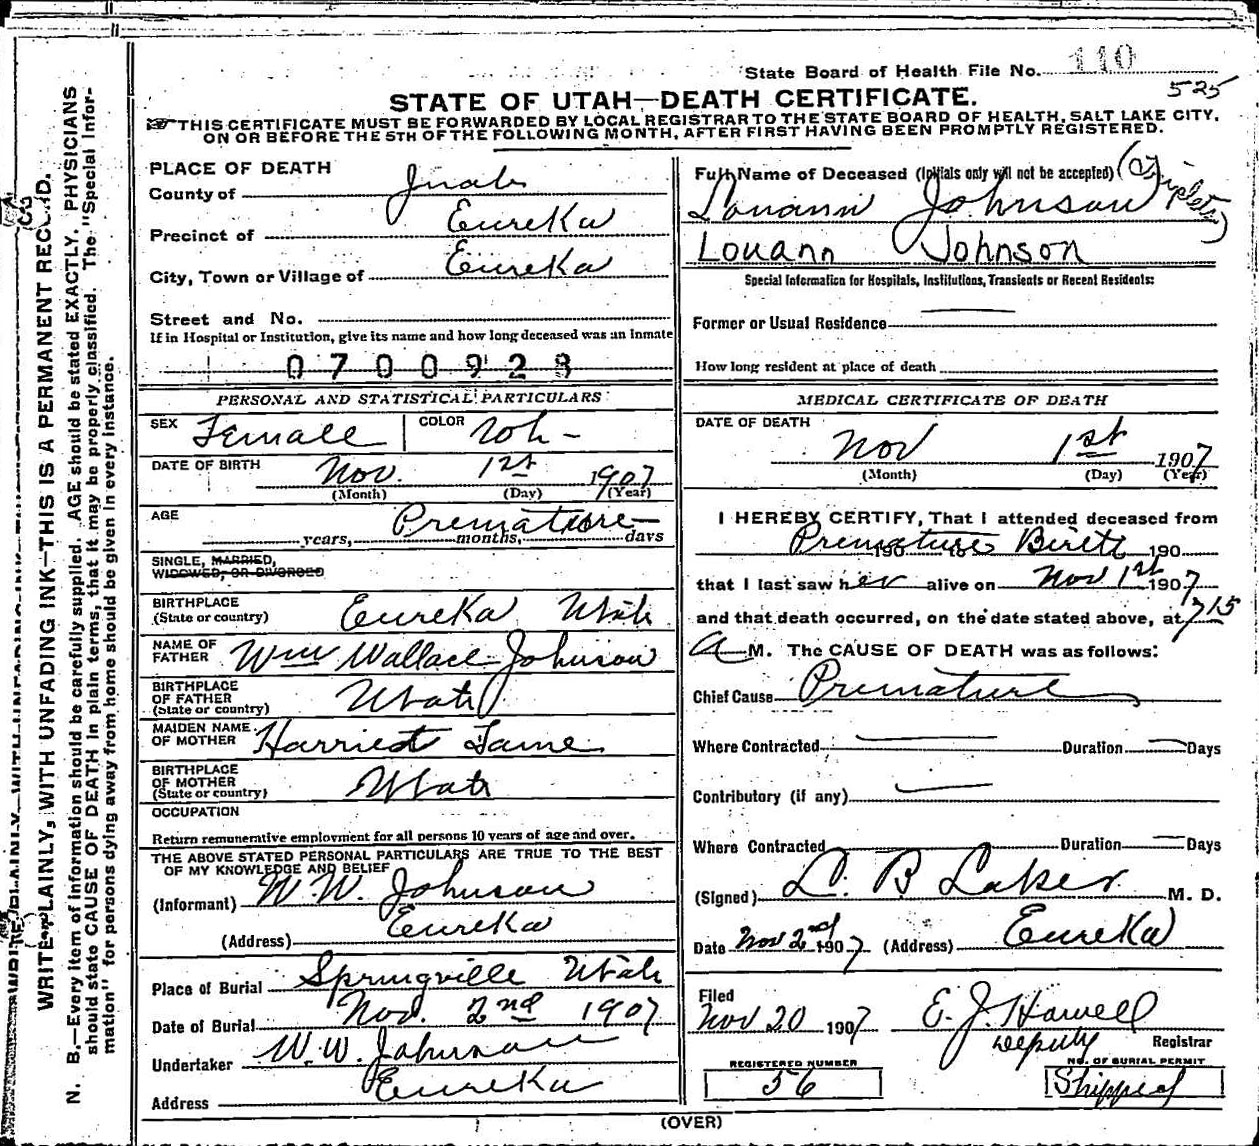 State Board of Health File No. 110
525
STATE OF UTAH—DEATH CERTIFICATE.
THIS CERTIFICATE MUST BE FORWARDED BY LOCAL REGISTRAR TO THE STATE BOARD OF HEALTH, SALT LAKE CITY,
ON OR BEFORE THE 5TH OF THE FOLLOWING MONTH, AFTER FIRST HAVING BEEN PROMPTLY REGISTERED.
WRITE PLAINLY, WITH UNFADING INK—THIS IS A PERMANENT RECORD.
N. B.—Every item of information should be carefully supplied. AGE should be stated EXACTLY. PHYSICIANS
should state CAUSE OF DEATH in plain terms, that it may be properly classified. The "Special Infor-
mation" for persons dying away from home should be given in every instance.
PLACE OF DEATH
County of Juab
Precinct of Eureka
City, Town or Village of Eureka
Street and No.
If in Hospital or Institution, give its name and how long deceased was an inmate
0700928
PERSONAL AND STATISTICAL PARTICULARS
SEX Female COLOR Wh-
DATE OF BIRTH Nov. 1st 1907
(Month) (Day) (Year)
AGE Premature
years, months, days
SINGLE, MARRIED,
WIDOWED, OR DIVORCED
BIRTHPLACE
(State or country) Eureka Utah
NAME OF
FATHER Wm Wallace Johnson
BIRTHPLACE
OF FATHER
(State or country) Utah
MAIDEN NAME
OF MOTHER Harriet
BIRTHPLACE
OF MOTHER
(State or country) Utah
OCCUPATION
Return remunerative employment for all persons 10 years of age and over.
THE ABOVE STATED PERSONAL PARTICULARS ARE TRUE TO THE BEST
OF MY KNOWLEDGE AND BELIEF
(Informant) W. W. Johnson
(Address) Eureka
Place of Burial Springville Utah
Date of Burial Nov. 2nd 1907
Undertaker W. W. Johnson
Address Eureka
Full Name of Deceased (Initials only will not be accepted) (Triplets)
Louann Johnson
Louann Johnson
Special Information for Hospitals, Institutions, Transients or Recent Residents:
Former or Usual Residence
How long resident at place of death
MEDICAL CERTIFICATE OF DEATH
DATE OF DEATH
Nov 1st 1907
(Month) (Day) (Year)
I HEREBY CERTIFY, That I attended deceased from
Premature Birth 190
that I last saw her alive on Nov 1st 1907
and that death occurred, on the date stated above, at 715
A M. The CAUSE OF DEATH was as follows:
Chief Cause Premature
Where Contracted Duration Days
Contributory (if any)
Where Contracted Duration Days
(Signed) L. B. Laker M. D.
Date Nov 2nd 1907 (Address) Eureka
Filed
Nov 20 1907 E. J. Howell
Deputy Registrar
REGISTERED NUMBER NO. OF BURIAL PERMIT
56 Shipped
(OVER)